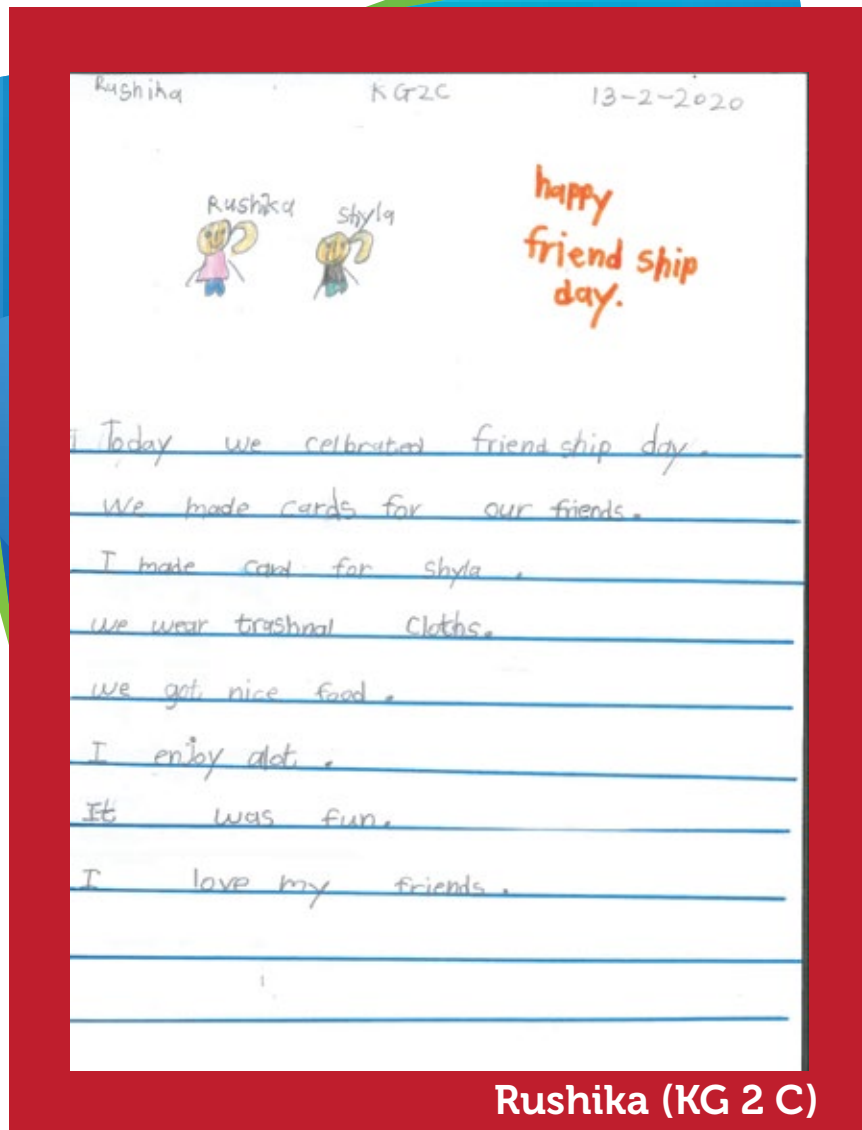 Rushika KG2C 13-2-2020
Rushika Shyla
happy
friend ship
day.
Today we celbrated friend ship day.
We made cards for our friends.
I made card for Shyla.
we wear trashnal cloths.
we got nice food.
I enjoy alot.
It was fun.
I love my friends.
Rushika (KG 2 C)